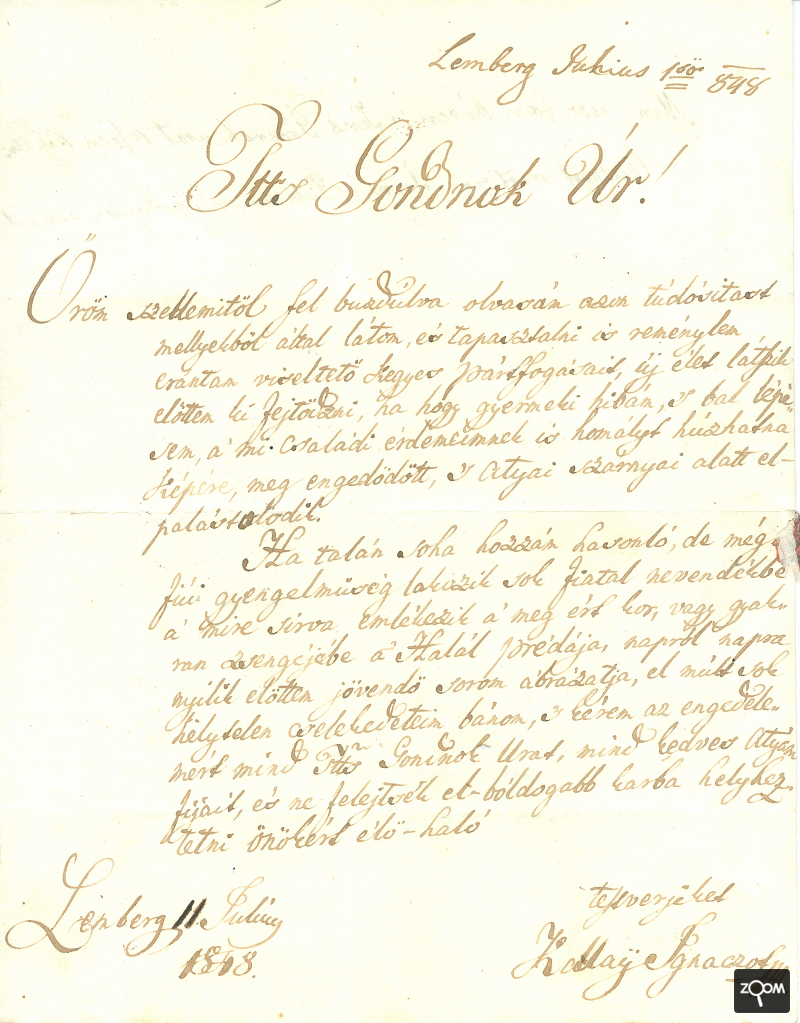 Lemberg Julius 1ső 848
Ttts Gondnok Úr!
Öröm szellemitöl fel buzdúlva olvasám azon túdósitást
mellyekböl által látom, és tapasztalni is reménylem
erántam viseltető kegyes pártfogásait, új élet látszik
előttem ki fejtődzni, ha hogy gyermeki hibán, 's bal lépé"
sem, a' mi családi érdemeimnek is homályt húzhatna
képére, meg engedödött, 's Atyai szárnyai alatt el-
palástolodik.
Ha talán soha hozzám hasonló, de még
fiúi gyengelmüség lakozik sok fiatal nevendékbe
a' mire sírva emlékezik a' meg ért kor, vagy gyak"
ran zsengéjébe a' Halál prédája, napról napra
nyilik elöttem jövendö sorom ábrázatja, el múlt sok
hélytelen cselekedeteim bánom, 's kérem az engedele"
mért mind Ttts Gondnok Urat, mind kedves Atyám
fijait, és ne felejtsék el-bóldogabb karba helyhez
tetni önökért élő-haló
Lemberg 11 Julius
1848.
testverjeket
Kallaÿ Ignacz
ZOOM